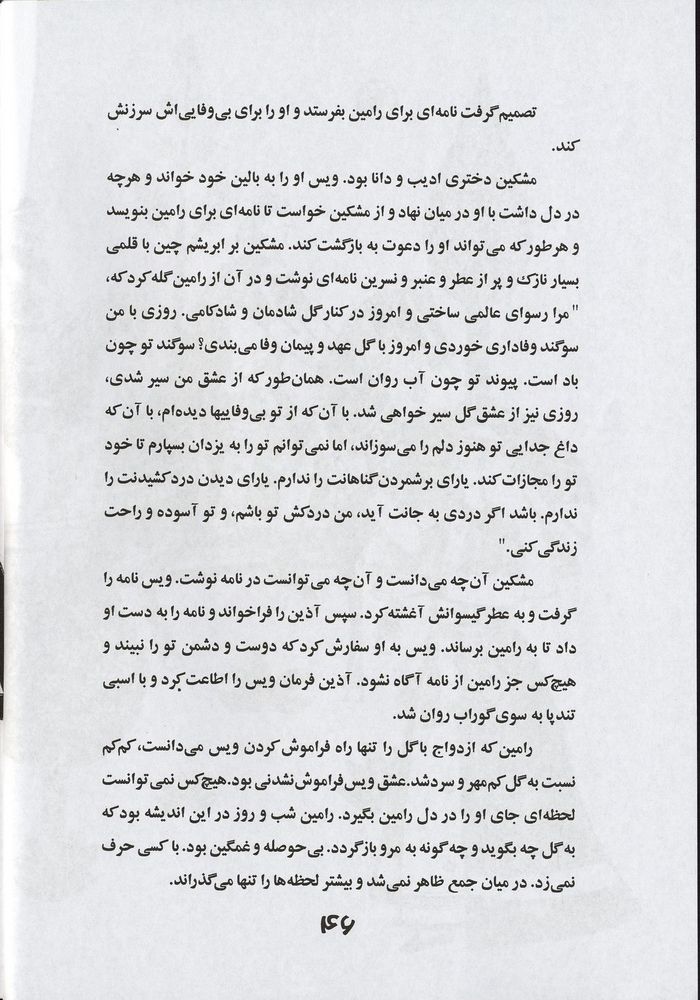 تصمیم گرفت نامه‌ای برای رامین بفرستد و او را برای بی‌وفایی‌اش سرزنش
کند.
مشکین دختری ادیب و دانا بود. ویس او را به بالین خود خواند و هرچه
در دل داشت با او در میان نهاد و از مشکین خواست تا نامه‌ای برای رامین بنویسد
و هر طور که می‌تواند او را دعوت به بازگشت کند. مشکین بر ابریشم چین با قلمی
بسیار نازک و پر از عطر و عنبر و نسرین نامه‌ای نوشت و در آن از رامین گله کرد که،
"مرا رسوای عالمی ساختی و امروز در کنار گل شادمان و شادکامی. روزی با من
سوگند وفاداری خوردی و امروز با گل عهد و پیمان وفا می‌بندی؟ سوگند تو چون
باد است. پیوند تو چون آب روان است. همان‌طور که از عشق من سیر شدی،
روزی نیز از عشق گل سیر خواهی شد. با آن که از تو بی‌وفاییها دیده‌ام، با آن که
داغ جدایی تو هنوز دلم را می‌سوزاند، اما نمی‌توانم تو را به یزدان بسپارم تا خود
تو را مجازات کند. یارای برشمردن گناهانت را ندارم. یارای دیدن درد کشیدنت را
ندارم. باشد اگر دردی به جانت آید، من دردکش تو باشم، و تو آسوده و راحت
زندگی کنی."
مشکین آن‌چه می‌دانست و آن‌چه می‌توانست در نامه نوشت. ویس نامه را
گرفت و به عطر گیسوانش آغشته کرد. سپس آذین را فراخواند و نامه را به دست او
داد تا به رامین برساند. ویس به او سفارش کرد که دوست و دشمن تو را نبیند و
هیچ‌کس جز رامین از نامه آگاه نشود. آذین فرمان ویس را اطاعت کرد و با اسبی
تندپا به سوی گوراب روان شد.
رامین که ازدواج با گل را تنها راه فراموش کردن ویس می‌دانست، کم‌کم
نسبت به گل کم‌مهر و سرد شد. عشق ویس فراموش نشدنی بود. هیچ‌کس نمی‌توانست
لحظه‌ای جای او را در دل رامین بگیرد. رامین شب و روز در این اندیشه بود که
به گل چه بگوید و چه گونه به مرو بازگردد. بی‌حوصله و غمگین بود. با کسی حرف
نمی‌زد. در میان جمع ظاهر نمی‌شد و بیشتر لحظه‌ها را تنها می‌گذراند.